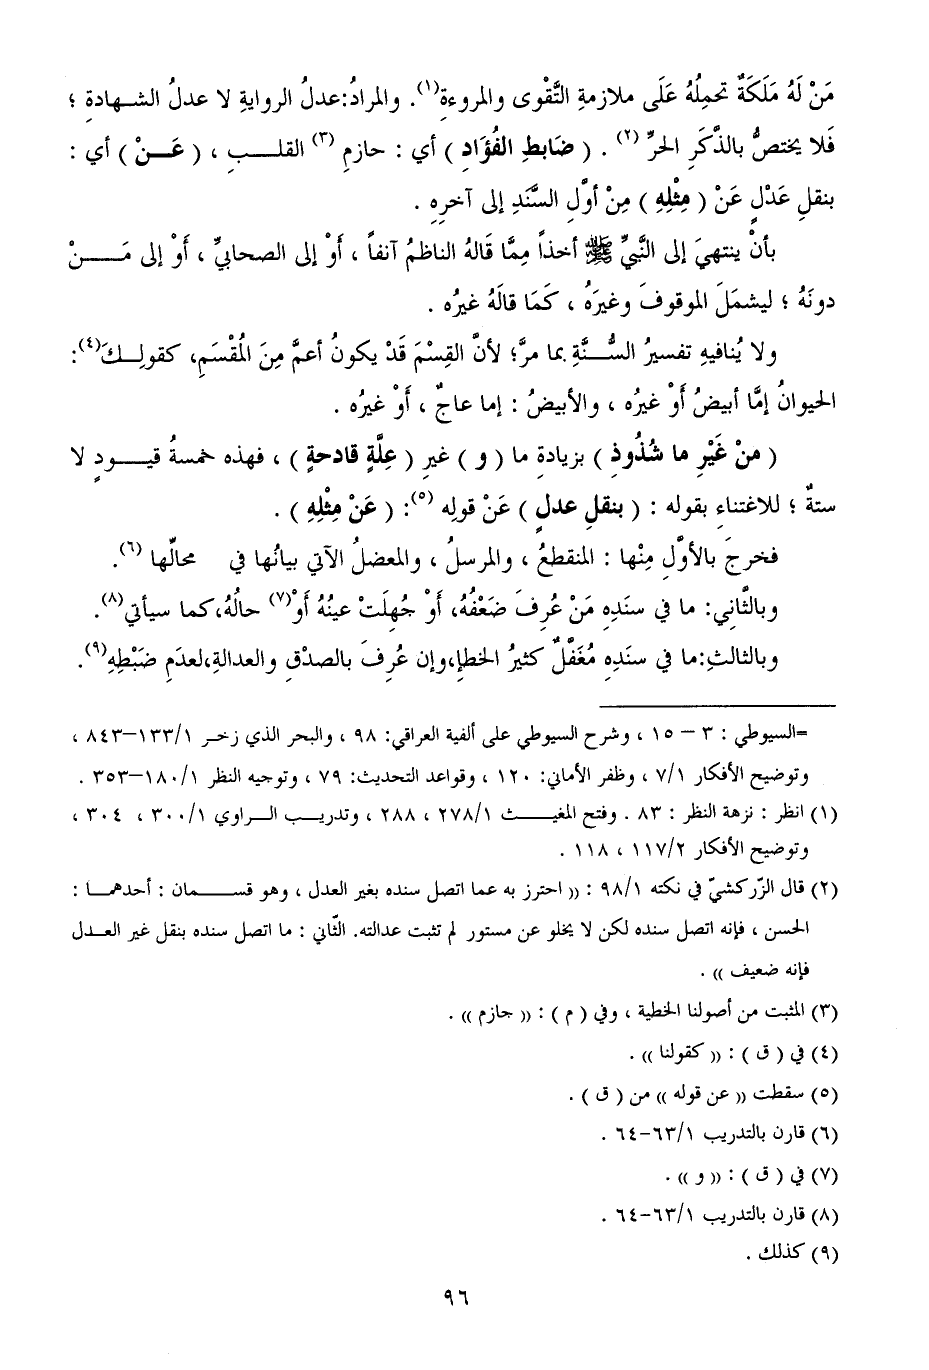 مَنْ لَهُ مَلَكَةٌ تحمِلُهُ عَلَى ملازمةِ التَّقْوى والمروءةِ(١). والمرادُ:عدلُ الروايةِ لا عدلُ الشهادةِ ؛
فَلا يختصُّ بالذَّكَرِ الحرِّ (٢) . ( ضَابطِ الفُؤَادِ ) أي : حازمِ (٣) القلبِ ، ( عَنْ ) أي :
بنقلِ عَدْلٍ عَنْ ( مِثْلِهِ ) مِنْ أوَّلِ السَّنَدِ إلى آخرِهِ .
بأنْ ينتهيَ إلى النَّبيِّ ﷺ أخذاً مِمَّا قَالهُ الناظمُ آنفاً ، أَوْ إلى الصحابيِّ ، أَوْ إلى مَنْ
دونَهُ ؛ ليشمَلَ الموقوفَ وغيرَهُ ، كَمَا قالَهُ غيرُه .
ولا يُنافيهِ تفسيرُ السُّنَّةِ بما مرَّ؛ لأنَّ القِسْمَ قَدْ يكونُ أعمَّ مِنَ المُقْسَمِ، كقولِكَ(٤):
الحيوانُ إمَّا أبيضُ أَوْ غيرُه ، والأبيضُ : إما عاجٌ ، أَوْ غيرُه .
( مِنْ غَيْرِ ما شُذُوذِ ) بزيادةِ ما ( و ) غيرِ ( عِلَّةٍ قادحةٍ ) ، فهذه خمسةُ قيودٍ لا
ستةٌ ؛ للاغتناءِ بقوله : ( بنقلِ عدلٍ ) عَنْ قولِه (٥): ( عَنْ مِثْلِهِ ) .
فخرجَ بالأوَّلِ مِنْها : المنقطعُ ، والمرسلُ ، والمعضلُ الآتي بيانُها في محالّها (٦).
وبالثَّاني: ما في سندِه مَنْ عُرِفَ ضَعْفُهُ، أَوْ جُهلَتْ عينُهُ أَوْ(٧) حالُهُ،كما سيأتي(٨).
وبالثالثِ:ما في سندِه مُغَفَّلٌ كثيرُ الخطإِ،وإن عُرِفَ بالصدْقِ والعدالةِ،لعدَمِ ضَبْطِهِ(٩).
=السيوطي : ٣ – ١٥ ، وشرح السيوطي على ألفية العراقي: ٩٨ ، والبحر الذي زخر ١٣٣/١–٨٤٣ ،
وتوضيح الأفكار ٧/١ ، وظفر الأماني: ١٢٠ ، وقواعد التحديث: ٧٩ ، وتوجيه النظر ١٨٠/١–٣٥٣ .
(١) انظر : نزهة النظر : ٨٣ . وفتح المغيث ٢٧٨/١ ، ٢٨٨ ، وتدريب الراوي ٣٠٠/١ ، ٣٠٤ ،
وتوضيح الأفكار ١١٧/٢ ، ١١٨ .
(٢) قال الزّركشيّ في نكته ٩٨/١ : (( احترز به عما اتصل سنده بغير العدل ، وهو قسمان : أحدهما :
الحسن ، فإنه اتصل سنده لكن لا يخلو عن مستور لم تثبت عدالته. الثّاني : ما اتصل سنده بنقل غير العدل
فإنه ضعيف )) .
(٣) المثبت من أصولنا الخطية ، وفي ( م ) : (( جازم )) .
(٤) في ( ق ) : (( كقولنا )) .
(٥) سقطت (( عن قوله )) من ( ق ) .
(٦) قارن بالتدريب ٦٣/١–٦٤ .
(٧) في ( ق ) : (( و )) .
(٨) قارن بالتدريب ٦٣/١–٦٤ .
(٩) كذلك .
٩٦